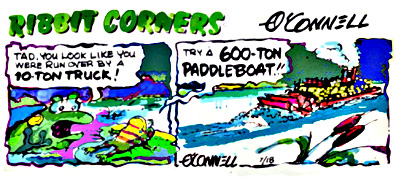 RIBBIT CORNERS
O'CONNELL
TAD, YOU LOOK LIKE YOU
WERE RUN OVER BY A
10-TON TRUCK!
TRY A 600-TON
PADDLEBOAT!!
O'CONNELL 7/18